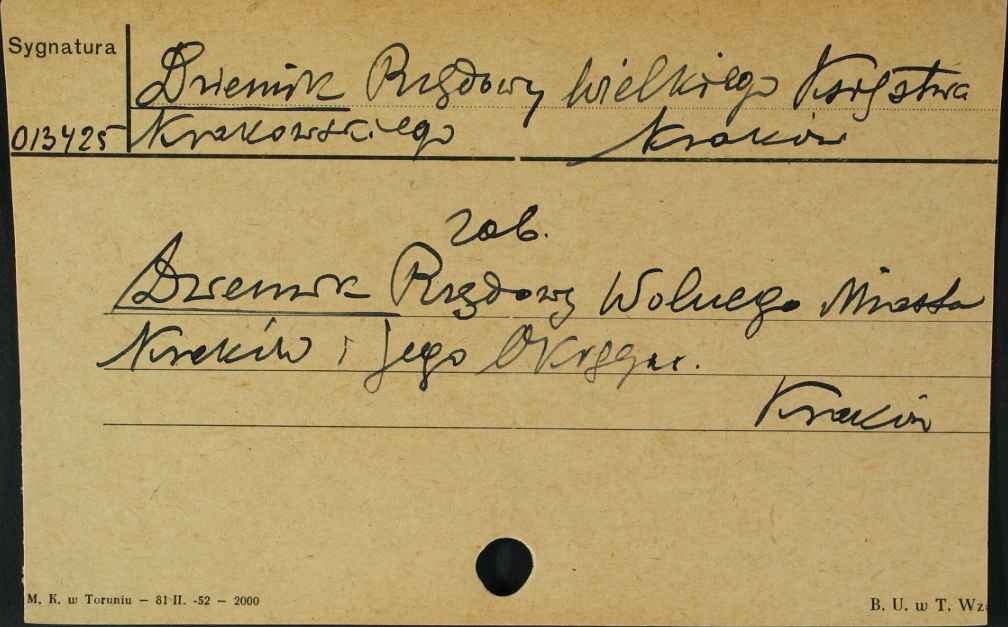 Sygnatura
Dziennik Rządowy Wielkiego Księstwa
013425 Krakowskiego Kraków
zob.
Dziennik Rządowy Wolnego Miasta
Kraków i jego Okręgu.
Kraków
M. K. w Toruniu — 81 II. -52 — 2000
B. U. w T. Wz